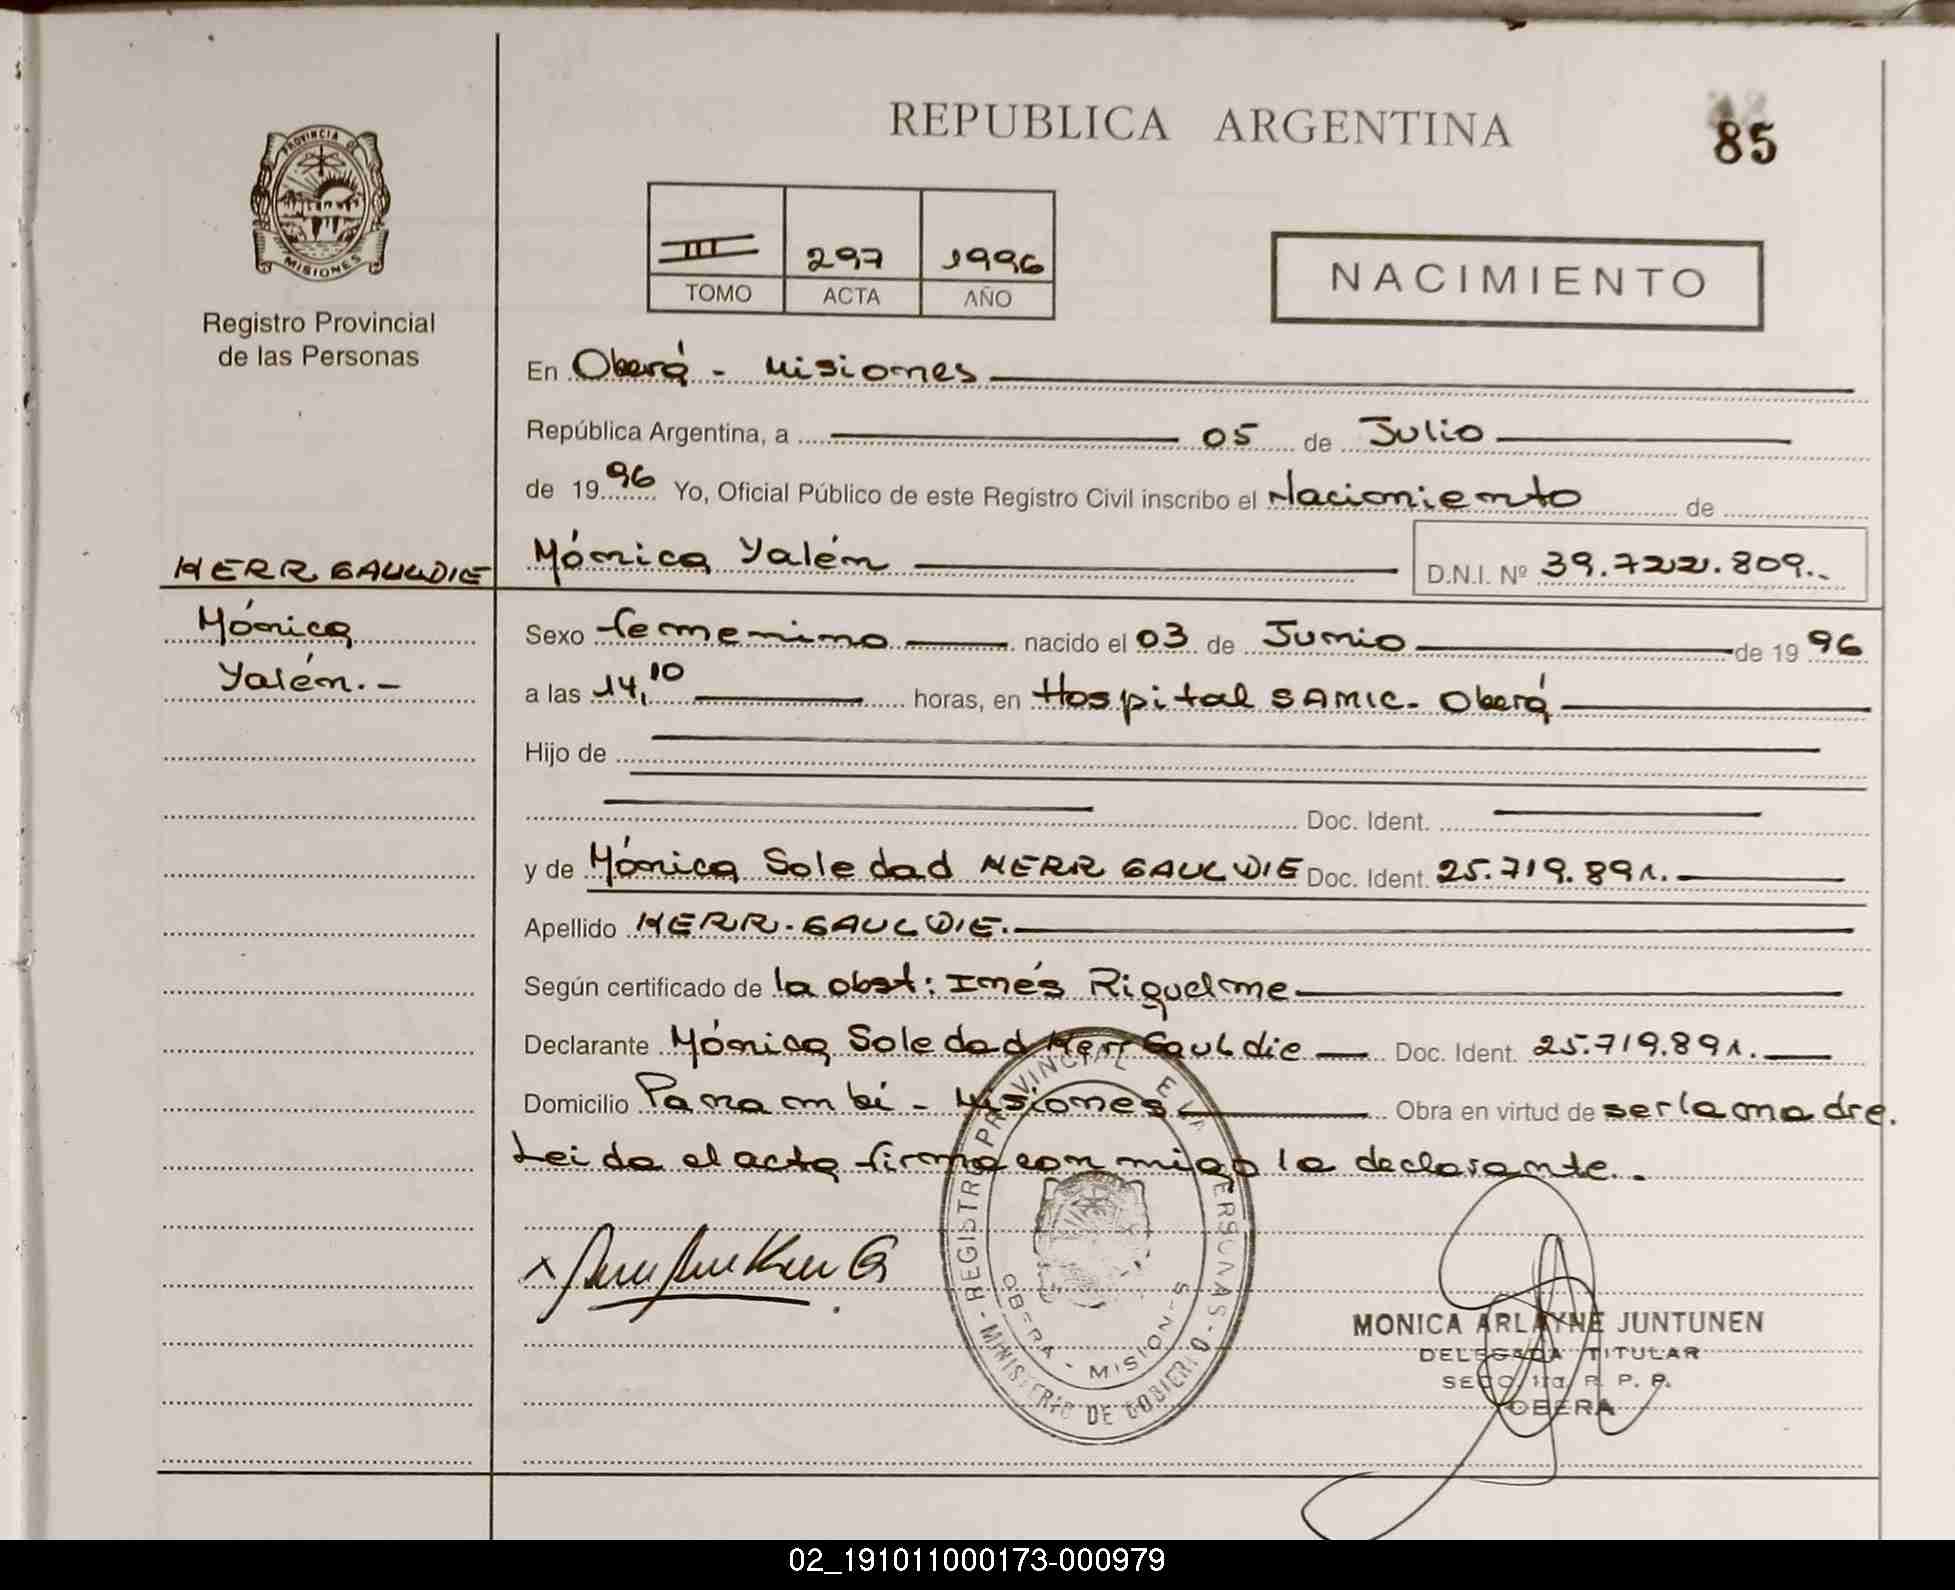 REPUBLICA ARGENTINA
85
PROVINCIA DE MISIONES
Registro Provincial
de las Personas
III 297 1996
TOMO ACTA AÑO
NACIMIENTO
En Oberá - Misiones
República Argentina, a 05 de Julio
de 1996 Yo, Oficial Público de este Registro Civil inscribo el Nacimiento de
HERR GAULDIE
Mónica
Yalén.-
Mónica Yalén D.N.I. Nº 39.722.809.-
Sexo femenino nacido el 03 de Junio de 1996
a las 14,10 horas, en Hospital SAMIC - Oberá
Hijo de
Doc. Ident.
y de Mónica Soledad HERR GAULDIE Doc. Ident. 25.719.891.
Apellido HERR-GAULDIE.
Según certificado de la obst: Inés Riquelme
Declarante Mónica Soledad Herr Gauldie Doc. Ident. 25.719.891.
Domicilio Panambí - Misiones Obra en virtud de ser la madre.
Leida el acta firma conmigo la declarante.-
REGISTRO PROVINCIAL DE LAS PERSONAS - MINISTERIO DE GOBIERNO
OBERA - MISIONES
MONICA ARLAYNE JUNTUNEN
DELEGADA TITULAR
SECC. 1ra. R. P. P.
OBERA
02_191011000173-000979